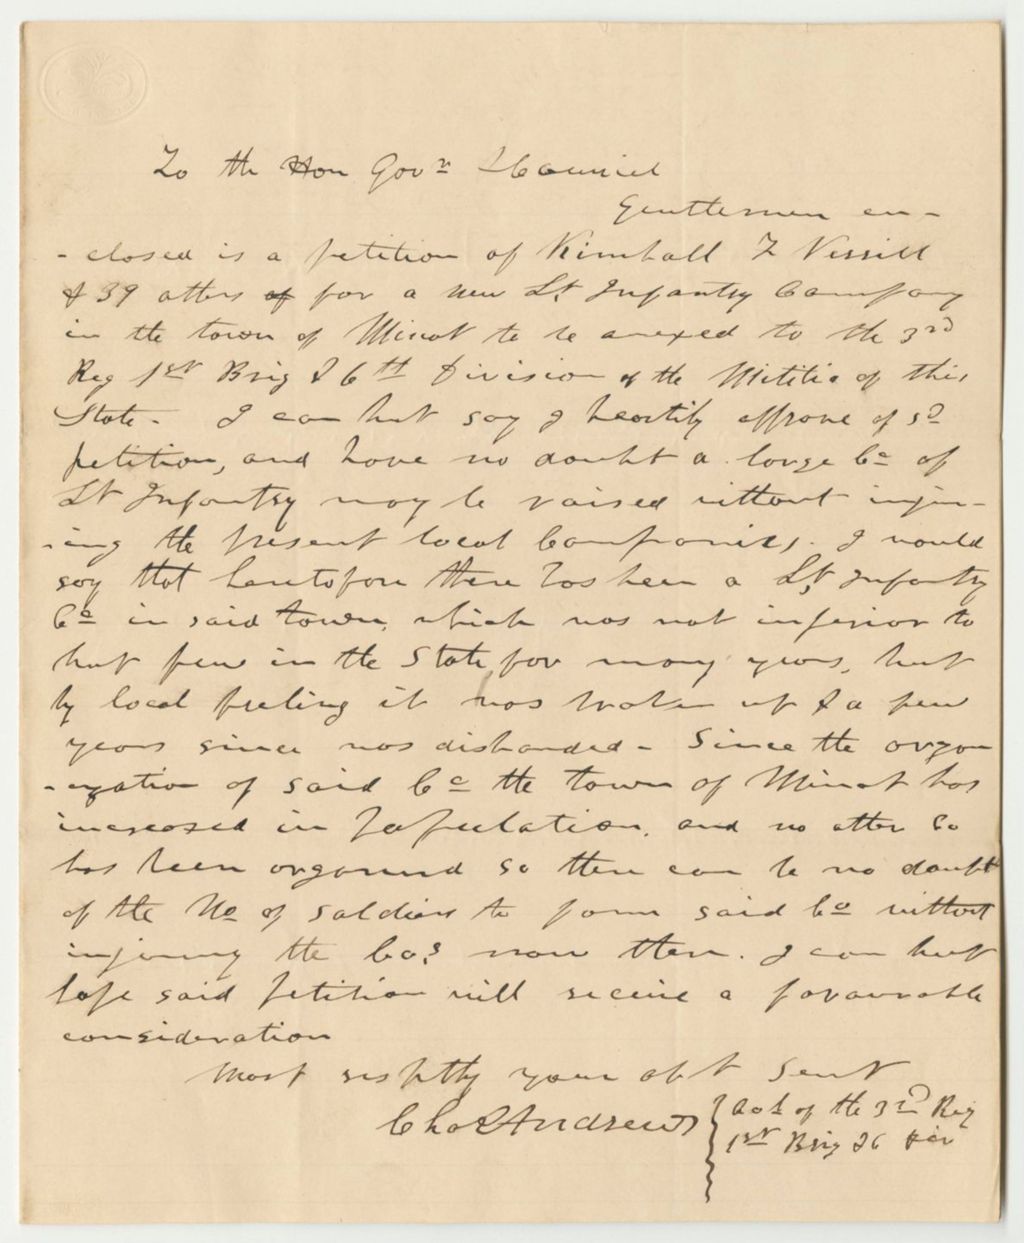 To the Hon Govr & Council
Gentlemen en-
-closed is a petition of Kimball F Verrill
& 39 others of for a new Lt Infantry Company
in the town of Minot to be anexed to the 3rd
Reg 1st Brig & 6th Division of the Militia of this
State - I can but say I heartily approve of sd
petition, and have no doubt a large Co of
Lt Infantry may be raised without injur-
-ing the present local Companies. I would
say that heretofore there has been a Lt Infantry
Co in said town, which was not inferior to
but few in the State, for many years, but
by local feeling it was broken up & a few
years since was disbanded - Since the organ
-ization of said Co the town of Minot has
increased in Population, and no other Co
has been organised so there can be no doubt
of the No of soldiers to form said Co without
injuring the Cos now there. I can but
hope said petition will receive a favourable
consideration
Most respttly your obt Servt
Chas Andrews
Col of the 3rd Reg
1st Brig & 6 Div